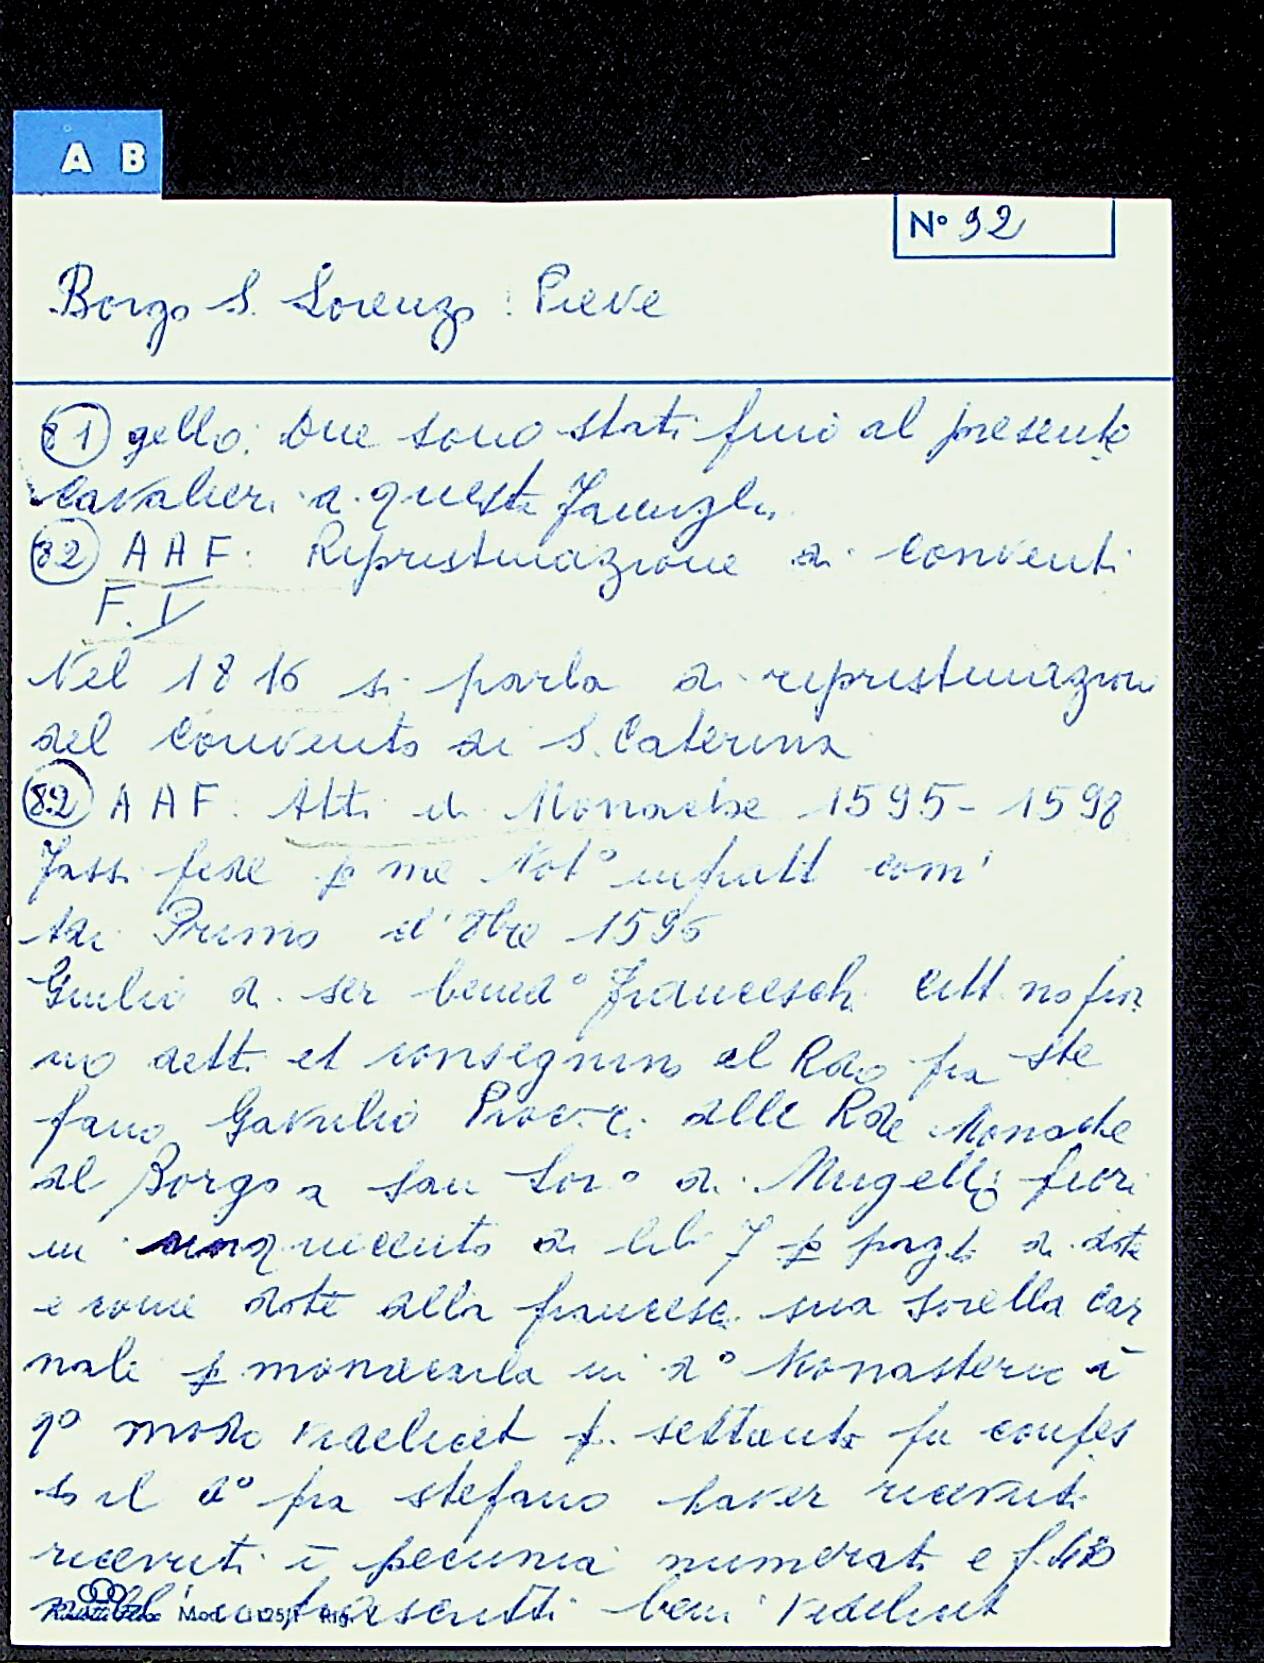 A B
N° 92
Borgo S. Lorenzo: Pieve
81 gello. Due sono stati fino al presente
Cavalieri di questa Famiglia
82 A A F: Ripristinazione di Conventi
F. V
Nel 1816 si parla di ripristinazione
del Convento di S. Caterina
82 A A F: Atti di Monache 1595-1598
Fassi fede p me Not° infratt com'
Primo d'8bre 1595
Giulio di ser bened° Franceschi citt no fior
no dett. et consegnino al Rdo fra Ste
fano Proc. delle Rde Monache
del Borgo a San Lor° di Mugello fiori
ni cinquecento di lib 7 p di dote
e come dote della francesca sua sorella Car
nale p monacarla in d° Monasterio i
q° modo videlicet f. settanta fu confes
so il d° fra Stefano haver ricevuti
ricevuti i pecunia numerati e f. 430
infrascritti beni videlicet
Mod.